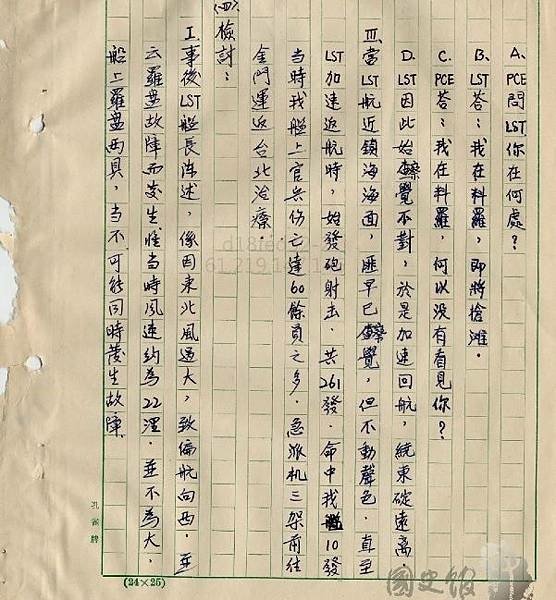 A. PCE問LST你在何處?
B. LST答:我在料羅,即將搶灘.
C. PCE答:我在料羅,何以没有看見你?
D. LST因此始察覺不對,於是加速回航,繞東碇遠離
Ⅲ. 當LST航近鎮海海面,匪早已察覺,但不動聲色.直至
LST加速返航時,始發砲射击.共261發.命中我艦10發
当時我艦上官兵伤亡達60餘員之多.急派机三架前往
金門運返台北治療
(四)檢討:
Ⅰ. 事後LST艦長陈述,係因東北風过大,致偏航向西.並
云羅盘故障而发生惟当時風速約為22浬.並不為大,
船上羅盘两具,当不可能同時發生故障
孔雀牌
(24×25)
國史館